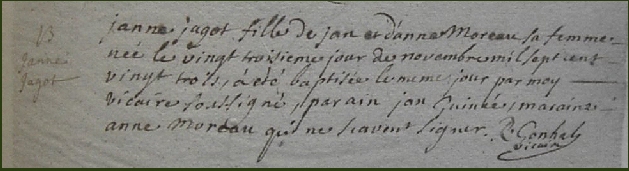 B
janne
jagot
janne jagot fille de jan et danne Moreau sa femme
neé le vingt troisieme jour de novembre mil sept cent
vingt trois, a eté baptisée le meme jour par moy
vicaire soussigné, parain jan Guineé, maraine
anne Moreau qui ne scavent signer. P. Gonhal
vicaire